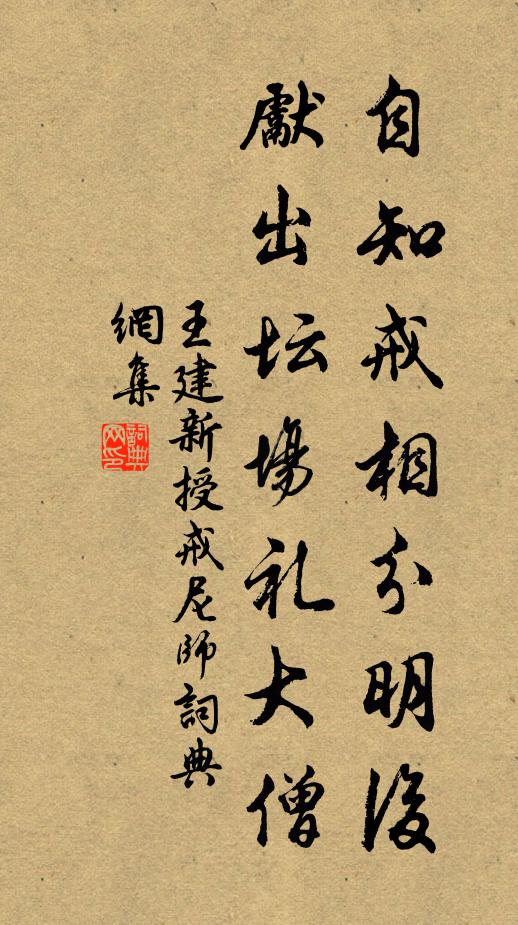 自知戒相分明後
獻出坛場礼大僧
王建新授戒尼師詞典
網集
詞典网印